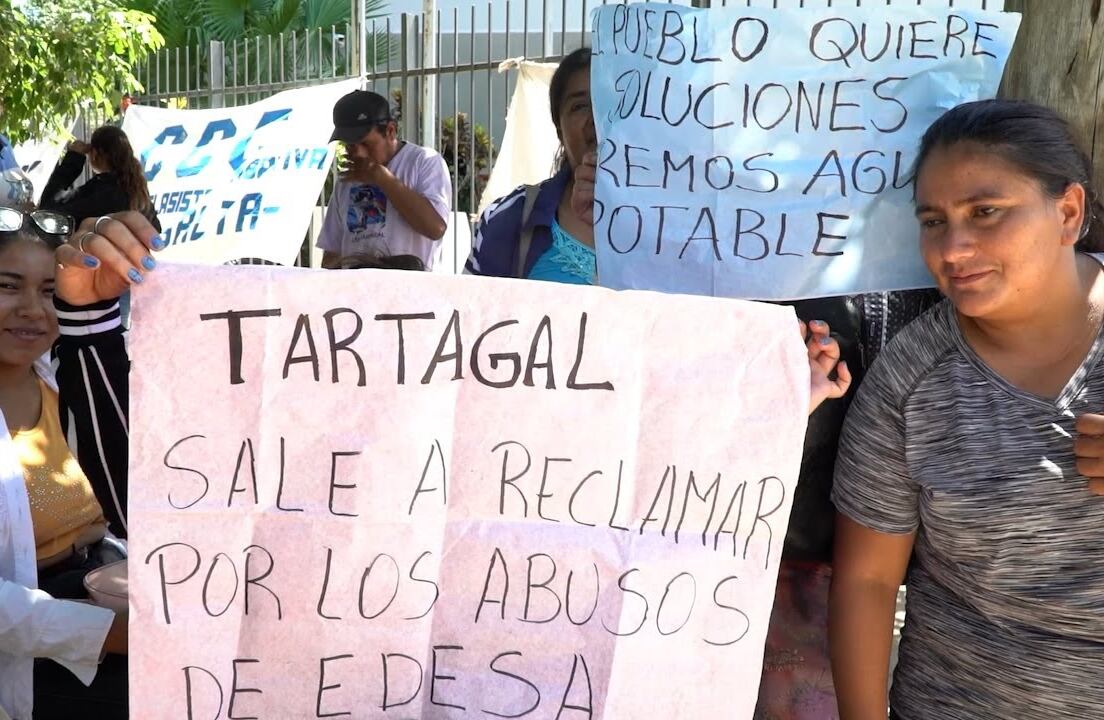 PUEBLO QUIERE
SOLUCIONES
REMOS AGU
POTABLE
CCC
LASIST
SALTA-
TARTAGAL
SALE A RECLAMAR
POR LOS ABUSOS
DE EDESA